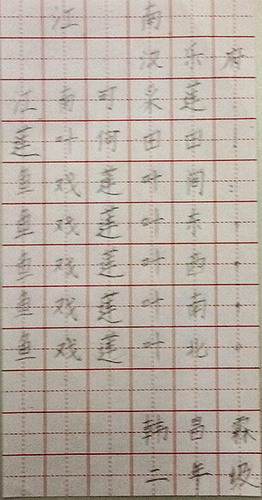 江南
汉乐府
江南可采莲
莲叶何田田，
鱼戏莲叶间：
鱼戏莲叶东，
鱼戏莲叶西，
鱼戏莲叶南，
鱼戏莲叶北
韩昌霖
二年级